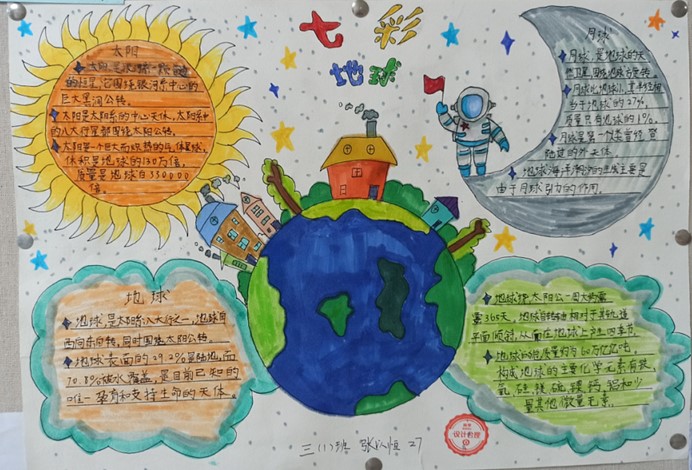 七彩
地球
太阳
的恒星,它围绕银河系中心的
巨大黑洞公转。
太阳是太阳系的中心天体,太阳系中
的八大行星都围绕太阳公转。
太阳是一个巨大而炽热的气体星球,
体积是地球的130万倍,
质量是地球的330000
倍。
月球
月球,是地球的天
然卫星,围绕地球旋转。
月球比地球小,其半径相
当于地球的27%,
质量只有地球的1%。
月球是第一个人类曾经登
陆过的外天体
地球海洋潮汐的产生主要是
由于月球引力的作用。
地球
地球是太阳系八大行星之一,地球自
西向东自转,同时围绕太阳公转。
地球表面的29.2%是陆地,而
70.8%被水覆盖,是目前已知的
唯一孕育和支持生命的天体。
地球绕太阳公一周大约需
要365天,地球自转轴相对于其轨道
平面倾斜,从而在地球上产生四季节
地球的总质量约为60万亿亿吨,
构成地球的主要化学元素有铁、
氧、硅、镁、硫、镍、钙、铝和少
量其他微量元素。
三(1)班 27